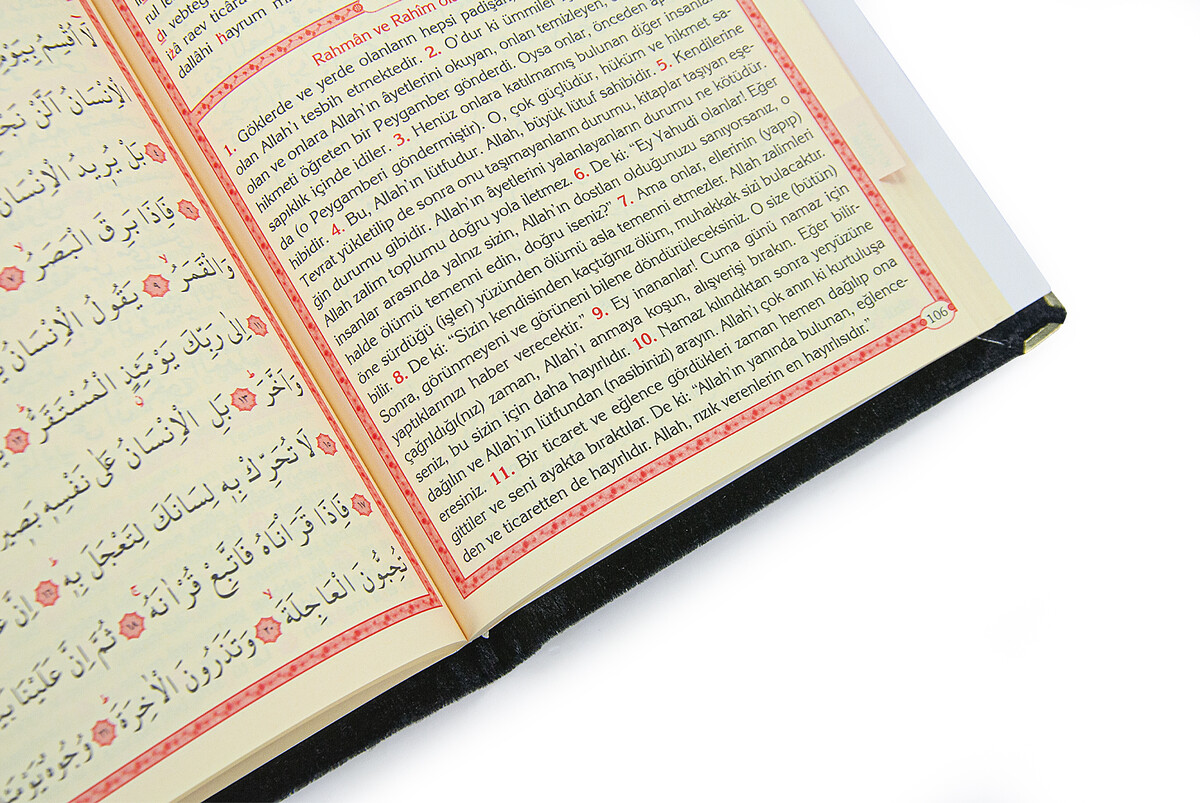 لَا اُقْسِمُ بِيَوْمِ
الْاِنْسَانُ اَلَّنْ نَجْمَعَ
بَلْ يُرٖيدُ الْاِنْسَانُ
فَاِذَا بَرِقَ الْبَصَرُ
وَالْقَمَرُ ﴿٩﴾ يَقُولُ الْاِنْسَانُ
اِلٰى رَبِّكَ يَوْمَئِذٍ الْمُسْتَقَرُّ
وَاَخَّرَ ﴿١٣﴾ بَلِ الْاِنْسَانُ عَلٰى نَفْسِهٖ بَصٖيرَةٌ
لَا تُحَرِّكْ بِهٖ لِسَانَكَ لِتَعْجَلَ بِهٖ ﴿١٦﴾ اِنَّ
فَاِذَا قَرَأْنَاهُ فَاتَّبِعْ قُرْاٰنَهُ ﴿١٨﴾ ثُمَّ اِنَّ عَلَيْنَا
تُحِبُّونَ الْعَاجِلَةَ ﴿٢٠﴾ وَتَذَرُونَ الْاٰخِرَةَ ﴿٢١﴾ وُجُوهٌ يَوْمَئِذٍ
rul
dı vebteg
izâ raev ticâra
dallâhi hayrum
Rahmân ve Rahîm
1. Göklerde ve yerde olanların hepsi padişah,
olan Allah'ı tesbih etmektedir. 2. O'dur ki ümmîler
olan ve onlara Allah'ın âyetlerini okuyan, onları temizleyen,
hikmeti öğreten bir Peygamber gönderdi. Oysa onlar, önceden
sapıklık içinde idiler. 3. Henüz onlara katılmamış bulunan diğer insanlar
da (o Peygamberi göndermiştir). O, çok güçlüdür, hüküm ve hikmet sa-
hibidir. 4. Bu, Allah'ın lütfudur. Allah, büyük lütuf sahibidir. 5. Kendilerine
Tevrat yükletilip de sonra onu taşımayanların durumu, kitaplar taşıyan eşe-
ğin durumu gibidir. Allah'ın âyetlerini yalanlayanların durumu ne kötüdür.
Allah zalim toplumu doğru yola iletmez. 6. De ki: "Ey Yahudi olanlar! Eğer
insanlar arasında yalnız sizin, Allah'ın dostları olduğunuzu sanıyorsanız, o
halde ölümü temenni edin, doğru iseniz?" 7. Ama onlar, ellerinin (yapıp)
öne sürdüğü (işler) yüzünden ölümü asla temenni etmezler. Allah zalimleri
bilir. 8. De ki: "Sizin kendisinden kaçtığınız ölüm, muhakkak sizi bulacaktır.
Sonra, görünmeyeni ve görüneni bilene döndürüleceksiniz. O size (bütün)
yaptıklarınızı haber verecektir." 9. Ey inananlar! Cuma günü namaz için
çağrıldığı(nız) zaman, Allah'ı anmaya koşun, alışverişi bırakın. Eğer bilir-
seniz, bu sizin için daha hayırlıdır. 10. Namaz kılındıktan sonra yeryüzüne
dağılın ve Allah'ın lütfundan (nasibinizi) arayın. Allah'ı çok anın ki kurtuluşa
eresiniz. 11. Bir ticaret ve eğlence gördükleri zaman hemen dağılıp ona
gittiler ve seni ayakta bıraktılar. De ki: "Allah'ın yanında bulunan, eğlence-
den ve ticaretten de hayırlıdır. Allah, rızık verenlerin en hayırlısıdır.
106